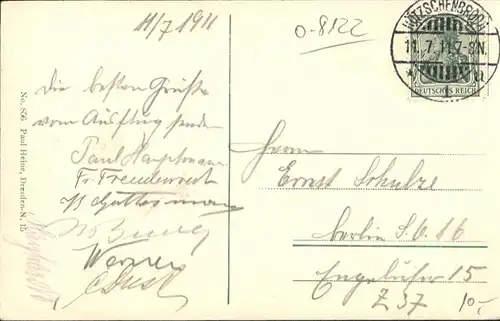 11/7 1911
0-8122
KÖTZSCHENBRODA
11.7.11.7-8N.
* a
DEUTSCHES REICH
Die besten Grüße
vom Ausflug senden
Paul Hauptmann
Fr. Freudenreich
Werner
No. 856 Paul Heine, Dresden-N. 15
Herrn
Ernst Schulze
Berlin S.O. 16
Engelufer 15
Z 37
10,-